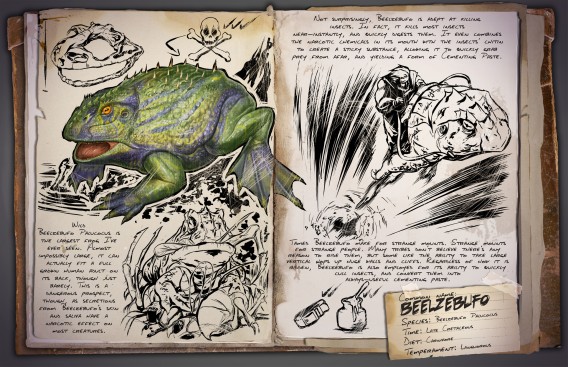 Wild
Beelzebufo Palucocus is
the largest frog I've
ever seen. Almost
impossibly large, it can
actually fit a full
grown human adult on
its back, though just
barely. This is a
dangerous prospect,
though, as secretions
from Beelzebufo's skin
and saliva have a
narcotic effect on
most creatures.
Not surprisingly, Beelzebufo is adept at killing
insects. In fact, it kills most insects
near-instantly, and quickly digests them. It even combines
the narcotic chemicals in its mouth with the insects' chitin
to create a sticky substance, allowing it to quickly grab
prey from afar, and yielding a form of Cementing Paste.
Tamed Beelzebufo make for strange mounts. Strange mounts
for strange people. Many tribes don't believe there's any
reason to ride them, but some like the ability to take large
vertical hops up huge walls and cliffs. Regardless of how it is
ridden, Beelzebufo is also employed for its ability to quickly
cull insects, and convert them into
always-useful cementing paste.
Common name:
BEELZEBUFO
Species: Beelzebufo Palucocus
Time: Late Cretaceous
Diet: Carnivore
Temperament: Languorous